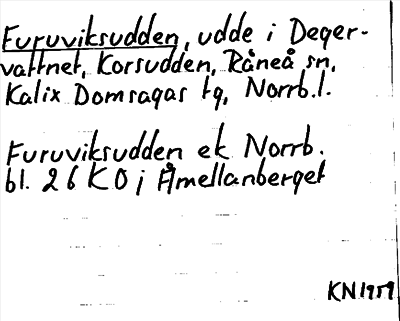 Furuviksudden, udde i Deger-
vattnet, Korsudden, Råneå sn,
Kalix Domsagas tg, Norrb.l.
Furuviksudden ek Norrb.
bl. 26 K O j Åmellanberget
KN 1959